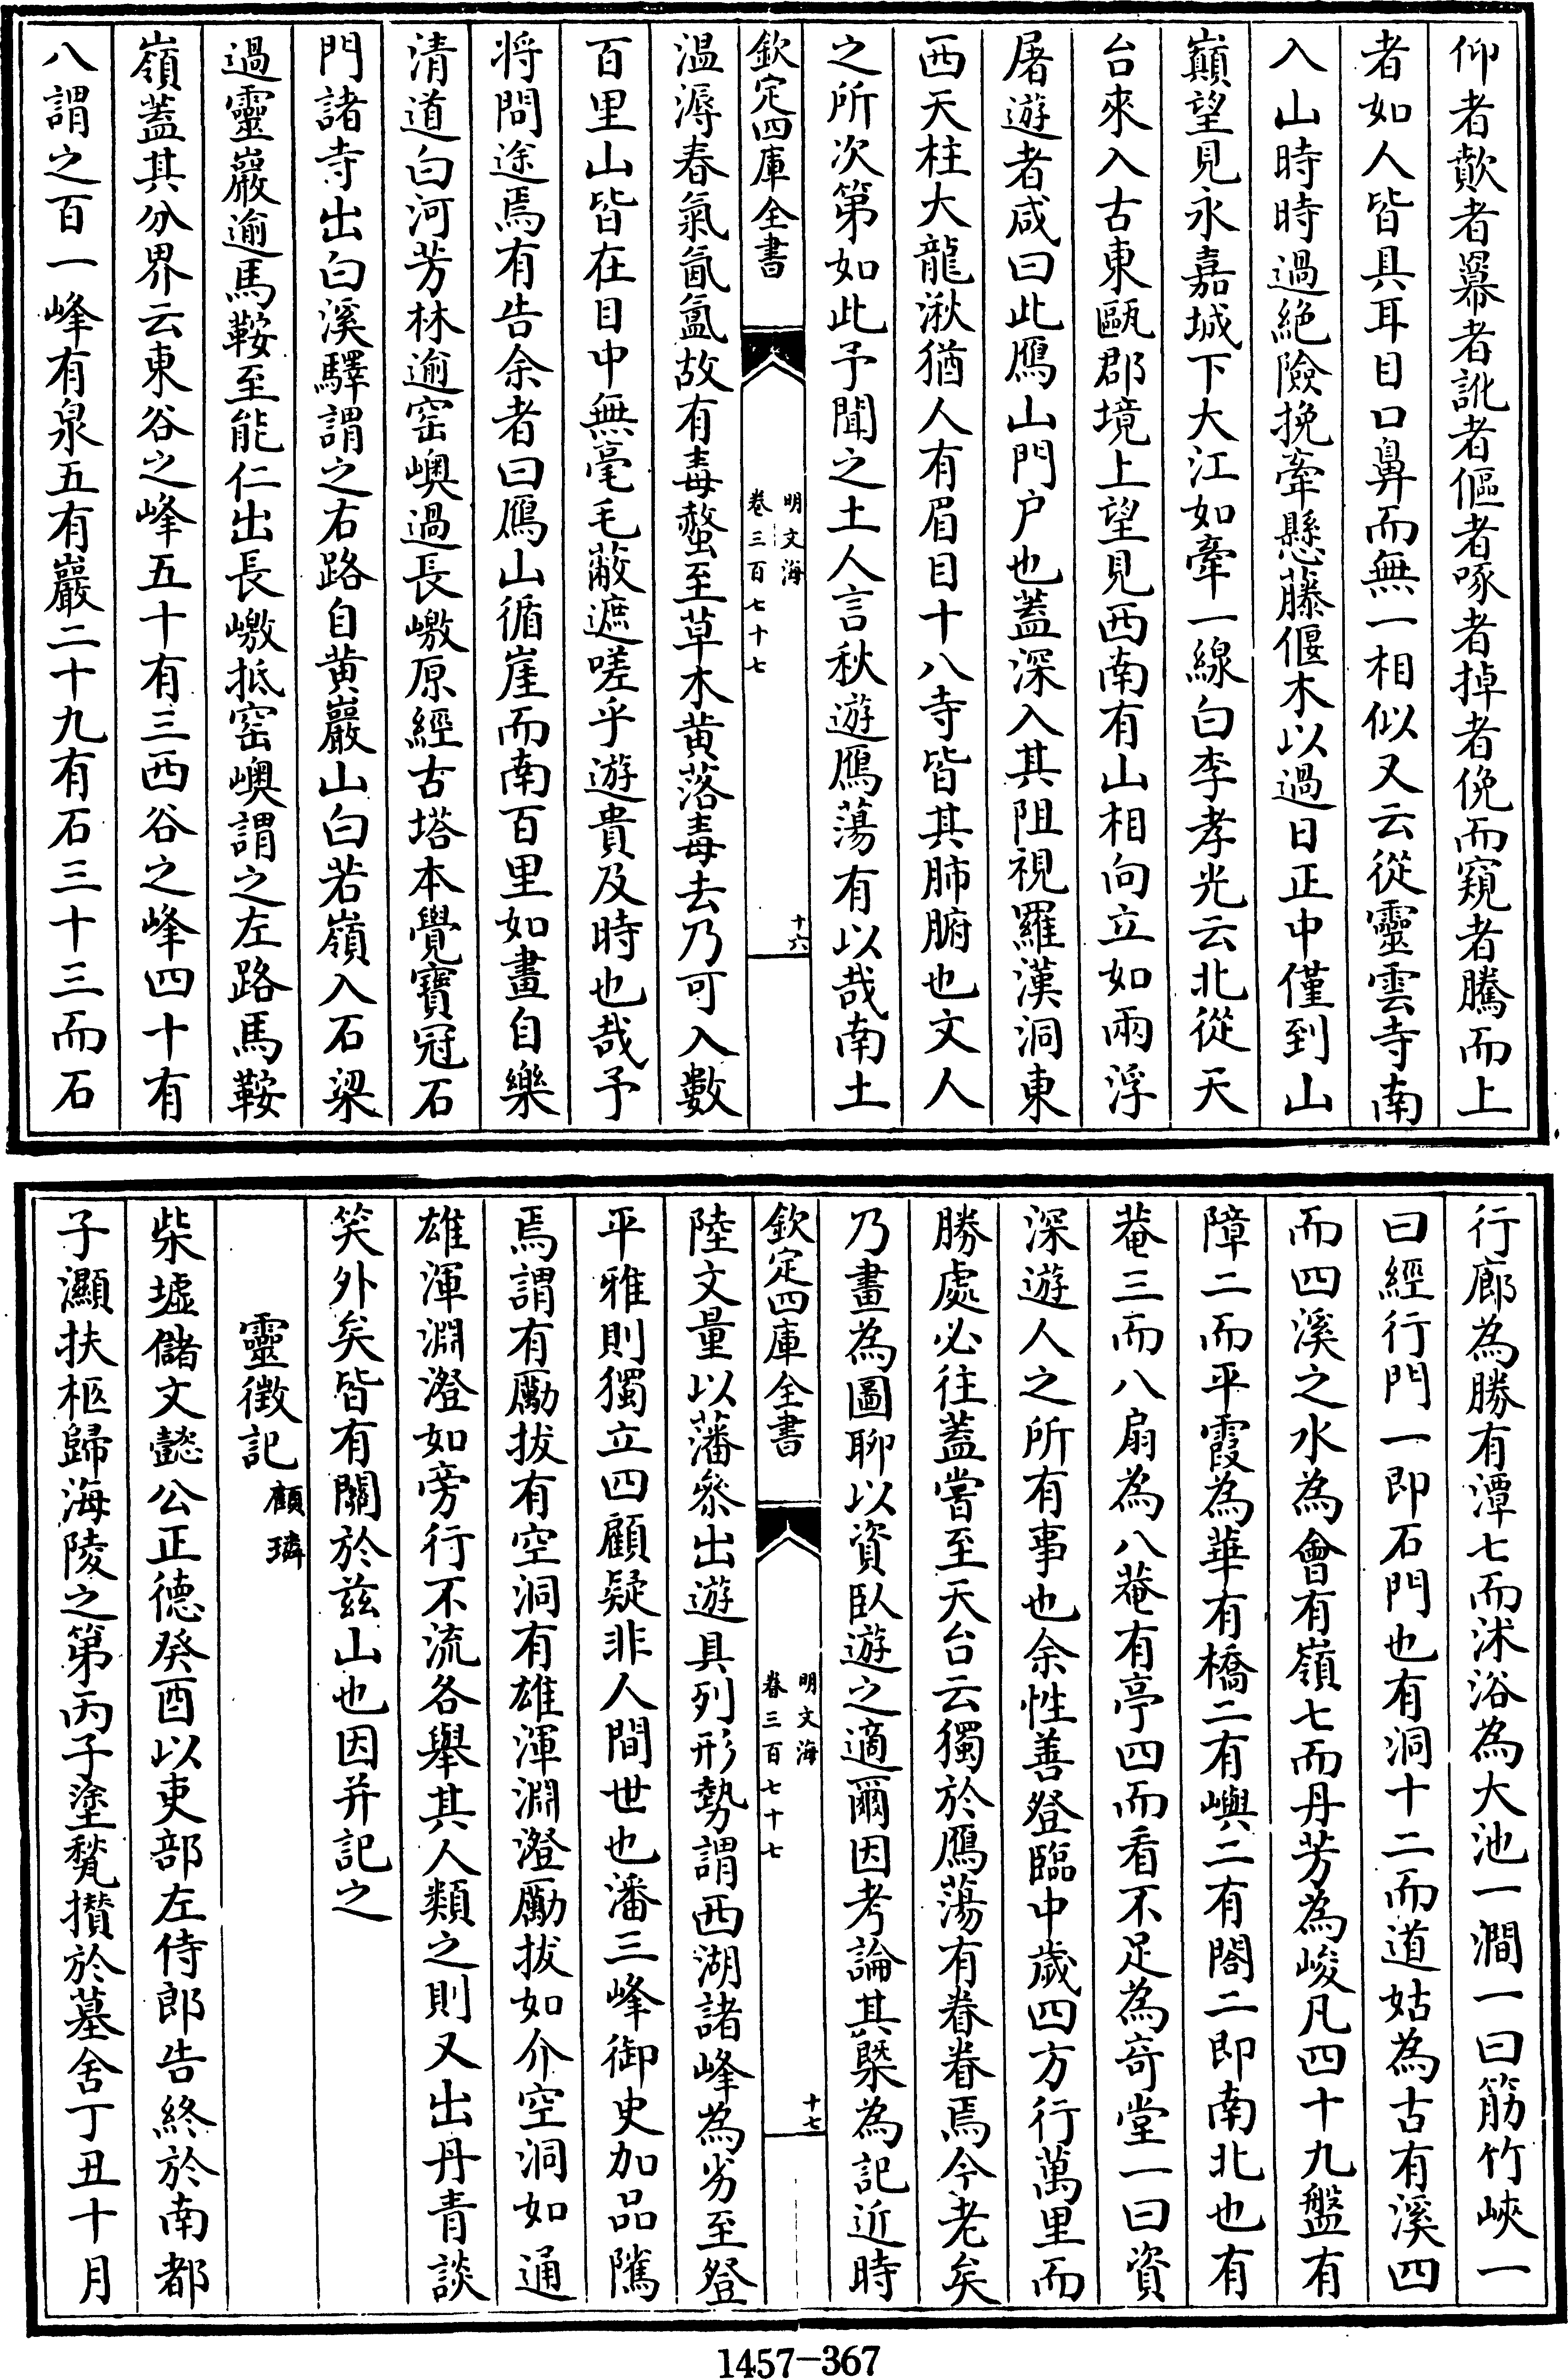 仰者欹者冪者訛者傴者啄者掉者俛而窺者騰而上
者如人皆具耳目口鼻而無一相似又云從靈雲寺南
入山時時過絶險挽牽懸藤偃木以過日正中僅到山
巔望見永嘉城下大江如牽一線白李孝光云北從天
台來入古東甌郡境上望見西南有山相向立如兩浮
屠遊者咸曰此鴈山門户也蓋深入其阻視羅漢洞東
西天柱大龍湫猶人有眉目十八寺皆其肺腑也文人
之所次第如此予聞之土人言秋遊鴈蕩有以哉南土
欽定四庫全書
明文海
卷三百七十七
十六
温溽春氣氤氲故有毒螫至草木黄落毒去乃可入數
百里山皆在目中無毫毛蔽遮嗟乎遊貴及時也哉予
将問途焉有告余者曰鴈山循崖而南百里如畫自樂
清道白河芳林逾窑嶴過長嶔原經古塔本覺寶冠石
門諸寺出白溪驛謂之右路自黄巖山白若嶺入石梁
過靈巖逾馬鞍至能仁出長嶔抵窑嶴謂之左路馬鞍
嶺蓋其分界云東谷之峰五十有三西谷之峰四十有
八謂之百一峰有泉五有巖二十九有石三十三而石
行廊為勝有潭七而沭浴為大池一澗一曰筋竹峽一
曰經行門一即石門也有洞十二而道姑為古有溪四
而四溪之水為會有嶺七而丹芳為峻凡四十九盤有
障二而平霞為華有橋二有嶼二有閣二即南北也有
菴三而八扇為八菴有亭四而看不足為奇堂一曰資
深遊人之所有事也余性善登臨中歲四方行萬里而
勝處必往蓋嘗至天台云獨於鴈蕩有眷眷焉今老矣
乃畫為圖聊以資臥遊之適爾因考論其槩為記近時
欽定四庫全書
明文海
卷三百七十七
十七
陸文量以藩叅出遊具列形勢謂西湖諸峰為劣至登
平雅則獨立四顧疑非人間世也潘三峰御史加品隲
焉謂有勵拔有空洞有雄渾淵澄勵拔如介空洞如通
雄渾淵澄如旁行不流各舉其人類之則又出丹青談
笑外矣皆有關於兹山也因并記之
靈徴記顧璘
柴墟儲文懿公正德癸酉以吏部左侍郎告終於南都
子灝扶柩歸海陵之第丙子塗甃攢於墓舍丁丑十月
1457-367